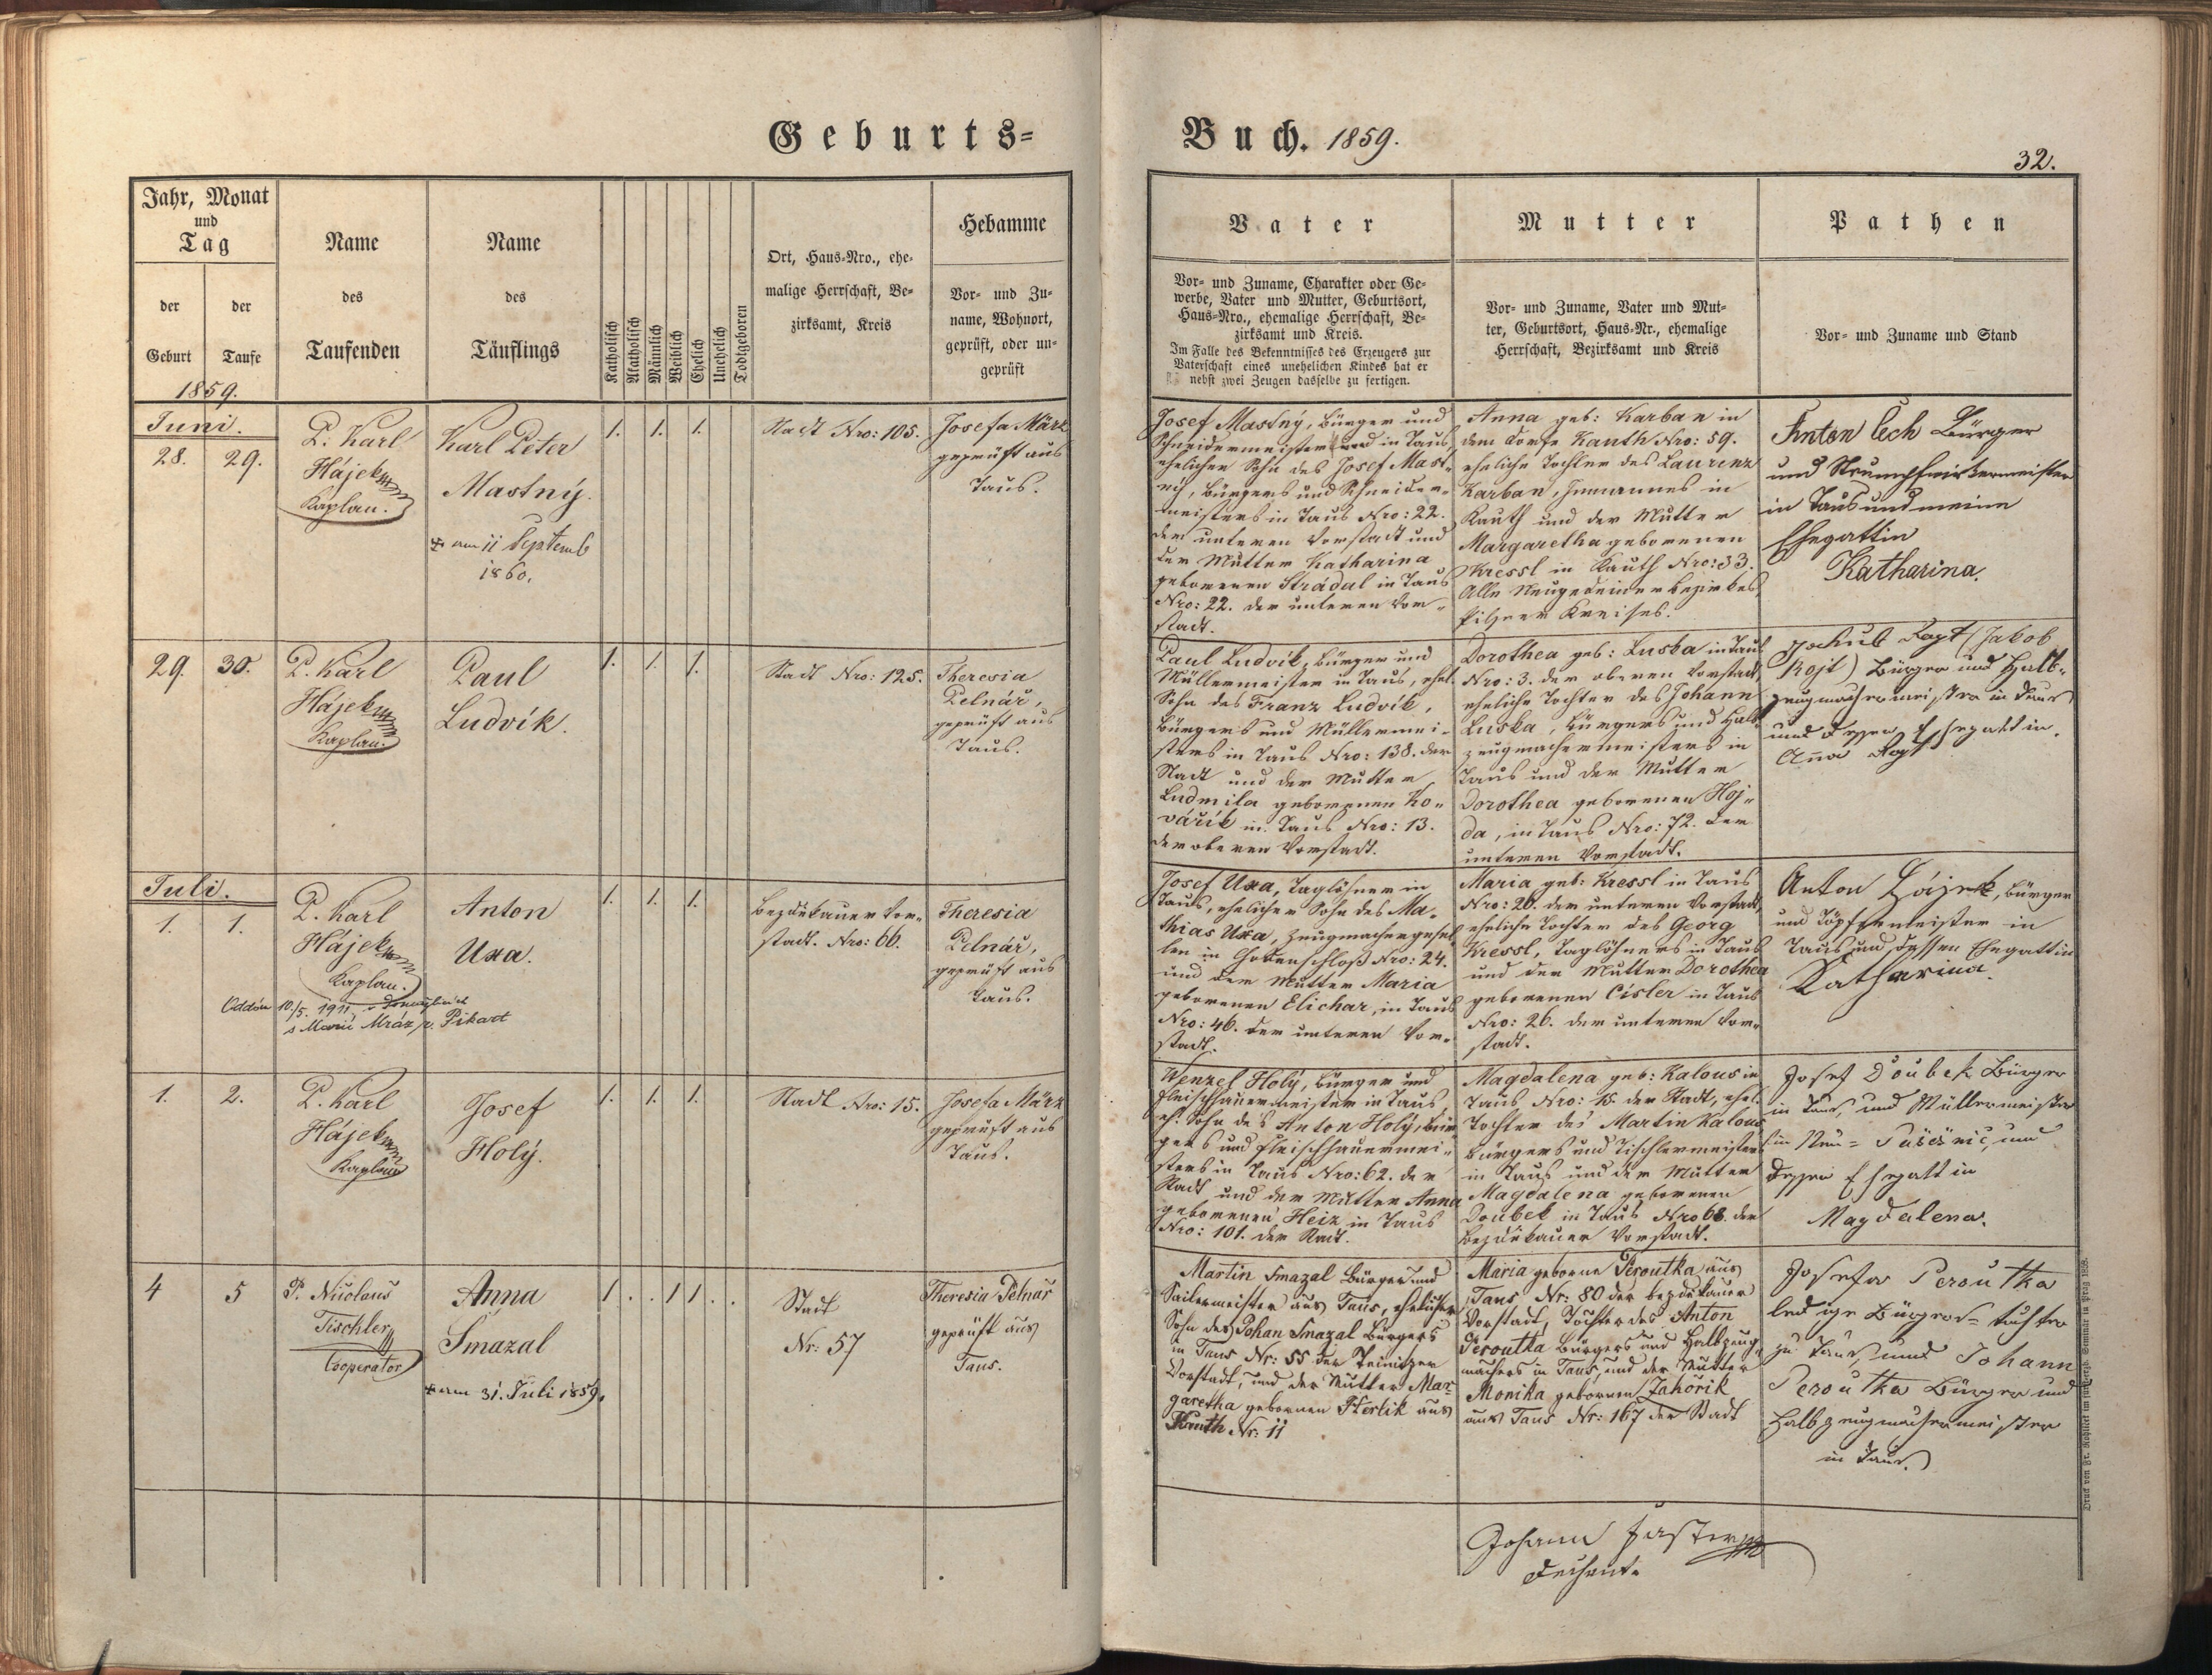 Geburts-
Jahr, Monat
und
Tag
der
Geburt
der
Taufe
1859.
Name
des
Taufenden
Name
des
Täuflings
Katholisch
Akatholisch
Männlich
Weiblich
Ehelich
Unehelich
Todtgeboren
Ort, Haus-Nro., ehe-
malige Herrschaft, Be-
zirksamt, Kreis
Hebamme
Vor- und Zu-
name, Wohnort,
geprüft, oder un-
geprüft
Juni.
28. 29.
P. Karl
Hájek
Kaplan.
Karl Peter
Mastný.
† am 11 Septemb
1860.
1. 1. 1.
Stadt Nro: 105.
Josefa März
geprüft aus
Taus.
29. 30.
P. Karl
Hájek
Kaplan.
Paul
Ludvík.
1. 1. 1.
Stadt Nro: 125.
Theresia
Pelnář,
geprüft aus
Taus.
Juli.
1. 1.
P. Karl
Hájek
Kaplan.
Anton
Uxa.
Oddán 10./5. 1911 v Domažlicích
s Marií Mráz r. Pikart
1. 1. 1.
Bezděkauer Vor-
stadt. Nro: 66.
Theresia
Pelnář,
geprüft aus
Taus.
1. 2.
P. Karl
Hájek
Kaplan
Josef
Holý.
1. 1. 1.
Stadt Nro: 15.
Josefa März
geprüft aus
Taus.
4 5
P. Nicolaus
Tischler
Cooperator
Anna
Smazal
† am 31. Juli 1859.
1 . . 1 1 . .
Stadt
Nr: 57
Theresia Pelnar
geprüft aus
Taus.
Buch. 1859.
32.
Vater
Vor- und Zuname, Charakter oder Ge-
werbe, Vater und Mutter, Geburtsort,
Haus-Nro., ehemalige Herrschaft, Be-
zirksamt und Kreis.
Im Falle des Bekenntnisses des Erzeugers zur
Vaterschaft eines unehelichen Kindes hat er
nebst zwei Zeugen dasselbe zu fertigen.
Mutter
Vor- und Zuname, Vater und Mut-
ter, Geburtsort, Haus-Nr., ehemalige
Herrschaft, Bezirksamt und Kreis
Pathen
Vor- und Zuname und Stand
Josef Mastný, Bürger und
Schneidermeister in Taus
ehelicher Sohn des Josef Mast-
ný, Bürgers und Schneider-
meisters in Taus Nro: 22.
der unteren Vorstadt und
der Mutter Katharina
geborenen Strádal in Taus
Nro: 22. der unteren Vor-
stadt.
Anna geb: Karban in
dem Dorfe Kauth Nro: 59.
eheliche Tochter des Laurenz
Karban, Inmannes in
Kauth und der Mutter
Margaretha geborenen
Kressl in Kauth Nro: 33.
Alle Neugedeiner Bezirkes,
Pilsner Kreises.
Anton Cech Bürger
und Strumpfwirkermeister
in Taus und meine
Ehegattin
Katharina.
Paul Ludvík, Bürger und
Müllermeister in Taus, ehel.
Sohn des Franz Ludvík,
Bürgers und Müllermei-
sters in Taus Nro: 138. der
Stadt und der Mutter
Ludmila geborenen Ko-
vářík in Taus Nro: 13.
der oberen Vorstadt.
Dorothea geb: Luska in Taus
Nro: 3. der oberen Vorstadt,
eheliche Tochter des Johann
Luska, Bürgers und Halb-
zeugmachermeisters in
Taus und der Mutter
Dorothea geborenen Hoj-
da, in Taus Nro: 72. der
unteren Vorstadt.
(Jakob
Kojt) Bürger und Halb-
zeugmachermeister in Taus
und dessen Ehegattin.
Anna
Josef Uxa, Taglöhner in
Taus, ehelicher Sohn des Ma-
thias Uxa, Zeugmachergesel-
len in Nro: 24.
und der Mutter Maria
geborenen Elichar, in Taus
Nro: 46. der unteren Vor-
stadt.
Maria geb: Kressl in Taus
Nro: 26. der unteren Vorstadt,
eheliche Tochter des Georg
Kressl, Taglöhners in Taus
und der Mutter Dorothea
geborenen Cisler in Taus
Nro: 26. der unteren Vor-
stadt.
Anton Hájek, Bürger
und Töpfermeister in
Taus und dessen Ehegattin
Katharina.
Wenzel Holý, Bürger und
Fleischhauermeister in Taus,
eh. Sohn des Anton Holý, Bür-
gers und Fleischhauermei-
sters in Taus Nro: 62. der
Stadt und der Mutter Anna
geborenen Heiz in Taus
Nro: 101. der Stadt.
Magdalena geb: Kalous in
Taus Nro: 15. der Stadt, ehel.
Tochter des Martin Kalous
Bürgers und Tischlermeisters
in Taus und der Mutter
Magdalena geborenen
Doubek in Taus Nro 68. der
Bezděkauer Vorstadt.
Josef Doubek Bürger
in Taus, und Müllermeister
in Neu= und
dessen Ehegattin
Magdalena.
Martin Smazal Bürger und
Seilermeister aus Taus, ehelicher
Sohn des Johan Smazal Bürgers
in Taus Nr: 55 der Teinitzer
Vorstadt, und der Mutter Mar-
garetha gebornen Sterlik aus
Kauth Nr: 11
Maria geborne Peroutka aus
Taus Nr: 80 der bezdekauer
Vorstadt, Tochter des Anton
Peroutka Bürgers und Halbzeug-
machers in Taus, und der Mutter
Monika gebornen Zahořik
aus Taus Nr: 167 der Stadt
Josefa Peroutka
ledige Bürgers=tochter
zu Taus, und Johann
Peroutka Bürger und
Halbzeugmachermeister
in Taus.
Johann Faster
Dechant.
Druck von Fr. Rohliček im fürsterzb. Seminär in Prag 1858.